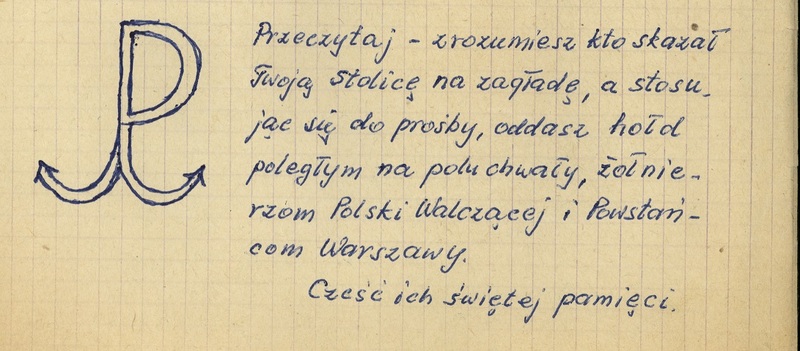 Przeczytaj – zrozumiesz kto skazał
Twoją Stolicę na zagładę, a stosu-
jąc się do prośby, oddasz hołd
poległym na polu chwały, żołnie-
rzom Polski Walczącej i Powstań-
com Warszawy.
Cześć ich świętej pamięci.